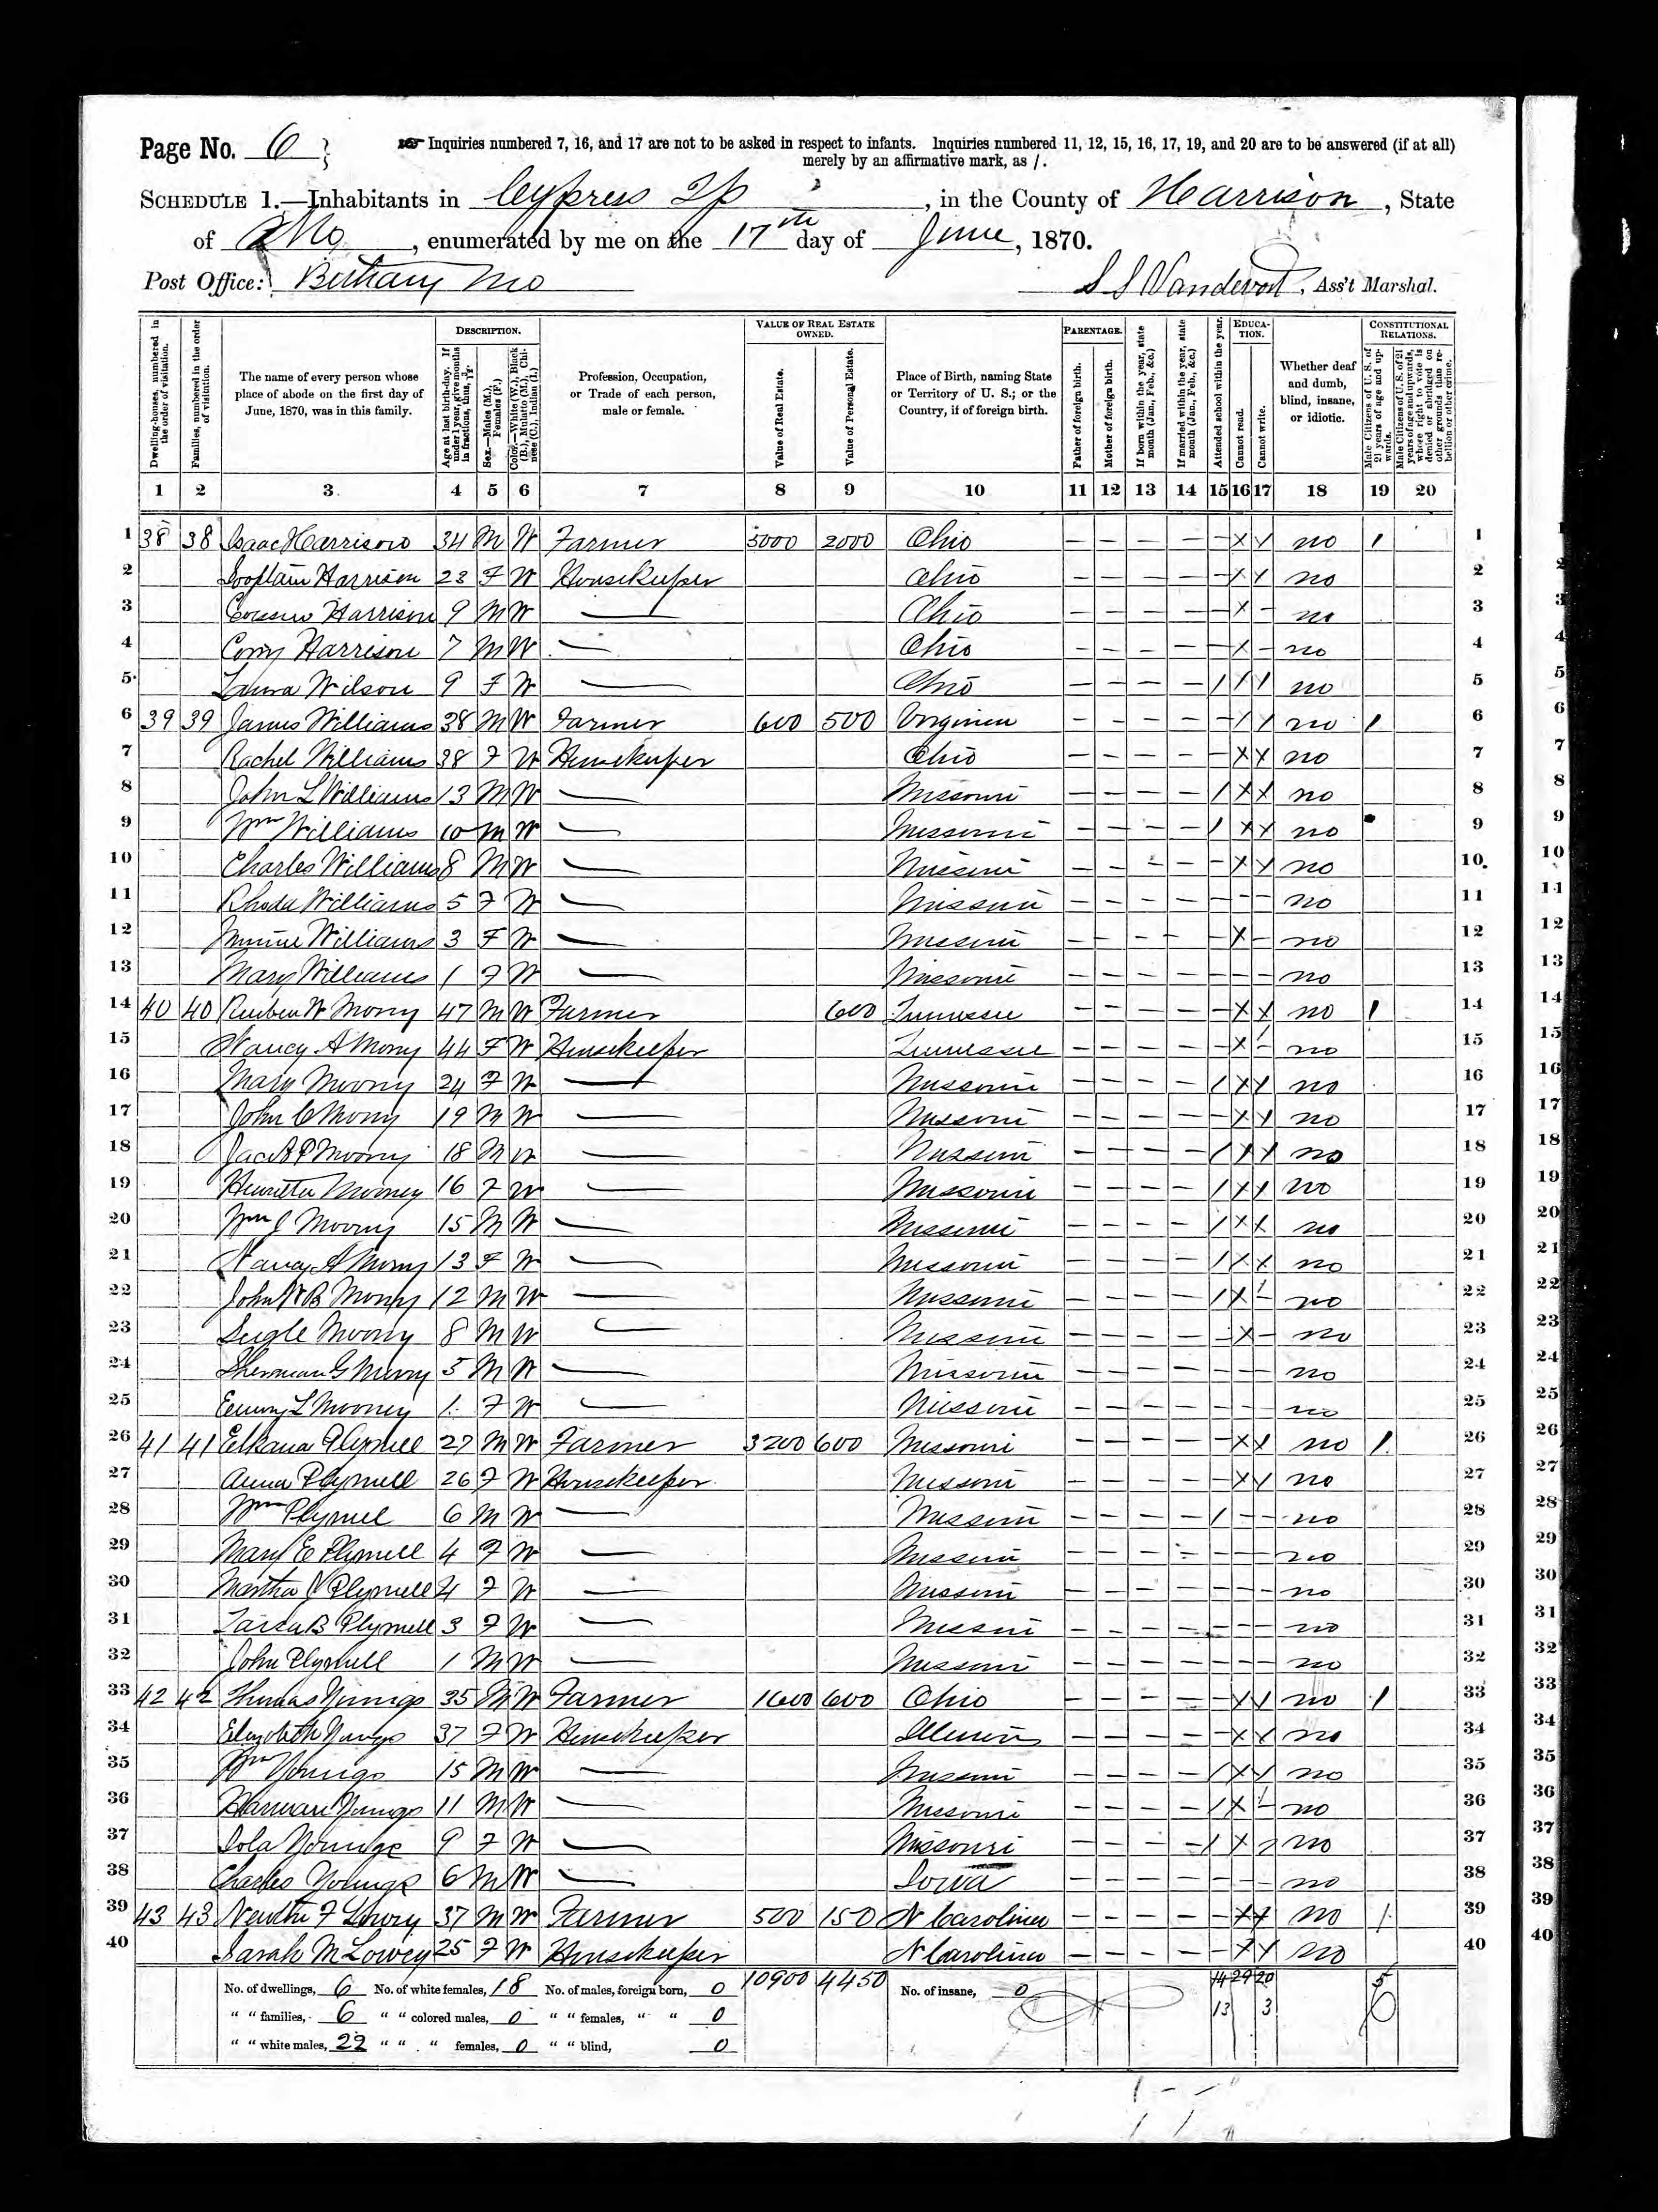 Page No. 6
Inquiries numbered 7, 16, and 17 are not to be asked in respect to infants. Inquiries numbered 11, 12, 15, 16, 17, 19, and 20 are to be answered (if at all)
merely by an affirmative mark, as /.
SCHEDULE 1.—Inhabitants in Cypress Tp, in the County of Harrison, State
of Mo, enumerated by me on the 17th day of June, 1870.
Post Office: Bethany Mo
S S Vandevort, Ass't Marshal.
Dwelling-houses, numbered in the order of visitation.
Families, numbered in the order of visitation.
The name of every person whose place of abode on the first day of June, 1870, was in this family.
DESCRIPTION.
Age at last birth-day. If under 1 year, give months in fractions, thus, 3/12.
Sex.—Males (M.), Females (F.)
Color.—White (W.), Black (B.), Mulatto (M.), Chinese (C.), Indian (I.)
Profession, Occupation, or Trade of each person, male or female.
VALUE OF REAL ESTATE OWNED.
Value of Real Estate.
Value of Personal Estate.
Place of Birth, naming State or Territory of U. S.; or the Country, if of foreign birth.
PARENTAGE.
Father of foreign birth.
Mother of foreign birth.
If born within the year, state month (Jan., Feb., &c.)
If married within the year, state month (Jan., Feb., &c.)
Attended school within the year.
EDUCATION.
Cannot read.
Cannot write.
Whether deaf and dumb, blind, insane, or idiotic.
CONSTITUTIONAL RELATIONS.
Male Citizens of U. S. of 21 years of age and upwards.
Male Citizens of U. S. of 21 years of age and upwards, whose right to vote is denied or abridged on other grounds than rebellion or other crime.
1 2 3 4 5 6 7 8 9 10 11 12 13 14 15 16 17 18 19 20
1 38 38 Isaac Harrison 34 M W Farmer 5000 2000 Ohio — — — — — X X no / 1
2 Harrison 23 F W Housekeeper Ohio — — — — — / / no 2
3 Harrison 9 M W — Ohio — — — — — X — no 3
4 Harrison 7 M W — Ohio — — — — — X — no 4
5 Laura Wilson 9 F W — Ohio — — — — / / / no 5
6 39 39 James Williams 38 M W Farmer 600 500 Virginia — — — — — / X no / 6
7 Rachel Williams 38 F W Housekeeper Ohio — — — — — X X no 7
8 John L Williams 13 M W — Missouri — — — — / X X no 8
9 Wm Williams 10 M W — Missouri — — — — / X X no 9
10 Charles Williams 8 M W — Missouri — — — — — X X no 10
11 Rhoda Williams 5 F W — Missouri — — — — — — — no 11
12 Williams 3 F W — Missouri — — — — — X — no 12
13 Mary Williams 1 F W — Missouri — — — — — — — no 13
14 40 40 Reuben W Mony 47 M W Farmer 600 Tennessee — — — — — X X no / 14
15 Nancy A Mony 44 F W Housekeeper Tennessee — — — — — X / no 15
16 Mary Moony 24 F W — Missouri — — — — / X X no 16
17 John C Mony 19 M W — Missouri — — — — — X X no 17
18 Jacob P Moony 18 M W — Missouri — — — — / X X no 18
19 Henrietta Mooney 16 F W — Missouri — — — — / X X no 19
20 Wm J Moony 15 M W — Missouri — — — — / X X no 20
21 Nancy A Mony 13 F W — Missouri — — — — / X X no 21
22 John W B Mony 12 M W — Missouri — — — — / X / no 22
23 Seigle Moony 8 M W — Missouri — — — — — X — no 23
24 Sherman G Mony 5 M W — Missouri — — — — — — — no 24
25 Emmy L Mooney 1 F W — Missouri — — — — — — — no 25
26 41 41 Elkana Plymell 27 M W Farmer 3200 600 Missouri — — — — — X X no / 26
27 Anna Plymell 26 F W Housekeeper Missouri — — — — — X X no 27
28 Wm Plymell 6 M W — Missouri — — — — / — — no 28
29 Mary E Plymell 4 F W — Missouri — — — — — — — no 29
30 Martha J Plymell 4 F W — Missouri — — — — — — — no 30
31 B Plymell 3 F W — Missouri — — — — — — — no 31
32 John Plymell 1 M W — Missouri — — — — — — — no 32
33 42 42 Thomas Youngs 35 M W Farmer 1600 600 Ohio — — — — — X X no / 33
34 Elizabeth Youngs 37 F W Housekeeper Illinois — — — — — X X no 34
35 Wm Youngs 15 M W — Missouri — — — — / X X no 35
36 Harman Youngs 11 M W — Missouri — — — — / X / no 36
37 Iola Youngs 9 F W — Missouri — — — — / X no 37
38 Charles Youngs 6 M W — Iowa — — — — — — — no 38
39 43 43 Newton F Lowry 37 M W Farmer 500 150 N Carolina — — — — — X X no / 39
40 Sarah M Lowey 25 F W Housekeeper N Carolina — — — — — X X no 40
No. of dwellings, 6 No. of white females, 18 No. of males, foreign born, 0 10900 4450 No. of insane, 0 14 29 20 5
" " families, 6 " " colored males, 0 " " females, " " 0 13 3 6
" " white males, 22 " " " females, 0 " " blind, 0